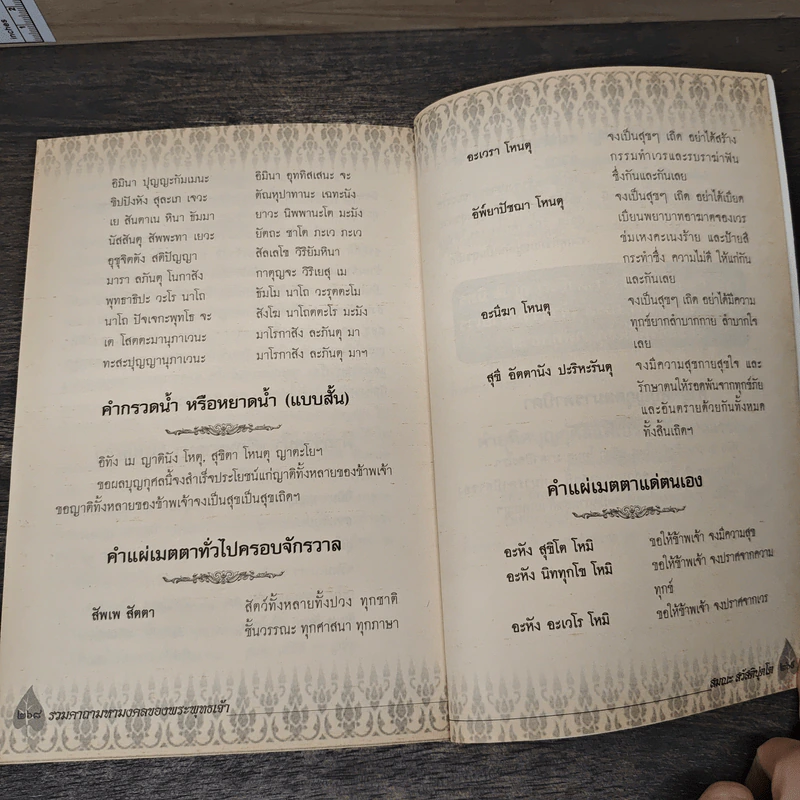 inches
1
2
อิมินา ปุญญะกัมเมนะ อิมินา อุททิสเสนะ จะ
ขิปปิงหัง สุละเภ เจวะ ตัณหุปาทานะ เฉทะนัง
เย สันตาเน หินา ธัมมา ยาวะ นิพพานะโต มะมัง
นัสสันตุ สัพพะทา เยวะ ยัตถะ ชาโต ภะเว ภะเว
อุชุจิตตัง สติปัญญา สัลเลโข วิริยัมหินา
มารา ลภันตุ โนกาสัง กาตุญจะ วิริเยสุ เม
พุทธาธิปะ วะโร นาโถ ธัมโม นาโถ วะรุตตะโม
นาโถ ปัจเจกะพุทโธ จะ สังโฆ นาโถตตะโร มะมัง
เต โสตตะมานุภาเวนะ มาโรกาสัง ละภันตุ มา
ทะสะปุญญานุภาเวนะ มาโรกาสัง ละภันตุ มาฯ
คำกรวดน้ำ หรือหยาดน้ำ (แบบสั้น)
อิทัง เม ญาตินัง โหตุ, สุขิตา โหนตุ ญาตะโยฯ
ขอผลบุญกุศลนี้จงสำเร็จประโยชน์แก่ญาติทั้งหลายของข้าพเจ้า
ขอญาติทั้งหลายของข้าพเจ้าจงเป็นสุขเป็นสุขเถิดฯ
คำแผ่เมตตาทั่วไปครอบจักรวาล
สัพเพ สัตตา สัตว์ทั้งหลายทั้งปวง ทุกชาติ
ชั้นวรรณะ ทุกศาสนา ทุกภาษา
๒๖๘ รวมคาถามหามงคลของพระพุทธเจ้า
อะเวรา โหนตุ จงเป็นสุขๆ เถิด อย่าได้สร้าง
กรรมทำเวรและรบราฆ่าฟัน
ซึ่งกันและกันเลย
อัพ์ยาปัชฌา โหนตุ จงเป็นสุขๆ เถิด อย่าได้เบียด
เบียนพยาบาทอาฆาตจองเวร
ข่มเหงคะเนงร้าย และป้ายสี
กระทำซึ่ง ความไม่ดี ให้แก่กัน
และกันเลย
อะนีฆา โหนตุ จงเป็นสุขๆ เถิด อย่าได้มีความ
ทุกข์ยากลำบากกาย ลำบากใจ
เลย
สุขี อัตตานัง ปะริหะรันตุ จงมีความสุขกายสุขใจ และ
รักษาตนให้รอดพ้นจากทุกข์ภัย
และอันตรายด้วยกันทั้งหมด
ทั้งสิ้นเถิดฯ
คำแผ่เมตตาแด่ตนเอง
อะหัง สุขิโต โหมิ ขอให้ข้าพเจ้า จงมีความสุข
อะหัง นิททุกโข โหมิ ขอให้ข้าพเจ้า จงปราศจากความ
ทุกข์
อะหัง อะเวโร โหมิ ขอให้ข้าพเจ้า จงปราศจากเวร
สมณะ สวัสดิปุตโต